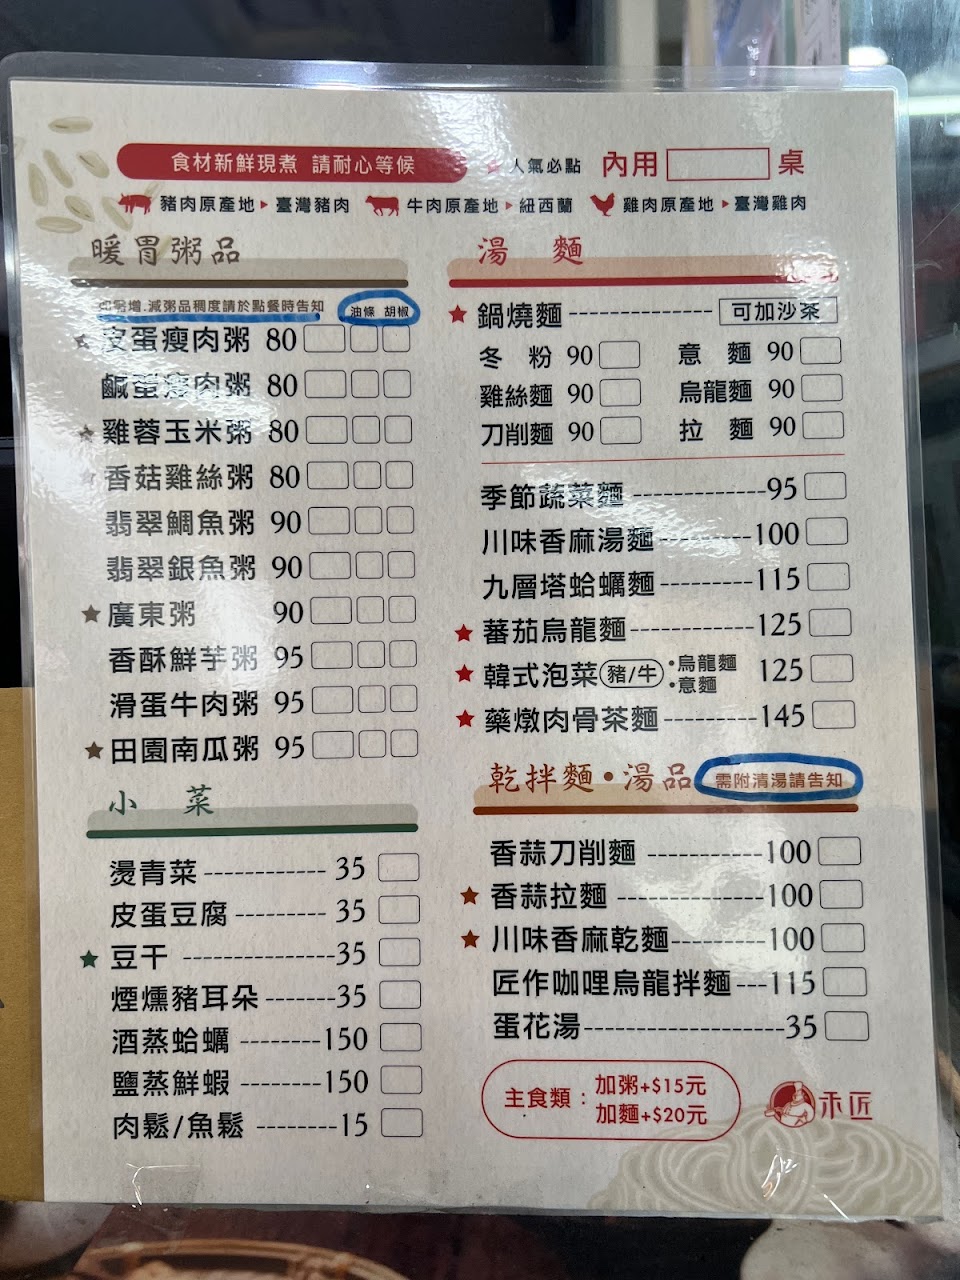 食材新鮮現煮 請耐心等候
★人氣必點
內用 桌
豬肉原產地▸臺灣豬肉
牛肉原產地▸紐西蘭
雞肉原產地▸臺灣雞肉
暖胃粥品
如需增.減粥品稠度請於點餐時告知
油條 胡椒
★皮蛋瘦肉粥 80
鹹蛋瘦肉粥 80
★雞蓉玉米粥 80
★香菇雞絲粥 80
翡翠鯛魚粥 90
翡翠銀魚粥 90
★廣東粥 90
香酥鮮芋粥 95
滑蛋牛肉粥 95
★田園南瓜粥 95
小菜
燙青菜------------35
皮蛋豆腐---------35
★豆干---------------35
煙燻豬耳朵-------35
酒蒸蛤蠣--------150
鹽蒸鮮蝦--------150
肉鬆/魚鬆--------15
湯麵
★鍋燒麵--------------可加沙茶
冬粉 90 意麵 90
雞絲麵 90 烏龍麵 90
刀削麵 90 拉麵 90
季節蔬菜麵-------------95
川味香麻湯麵---------100
九層塔蛤蠣麵---------115
★蕃茄烏龍麵-----------125
★韓式泡菜(豬/牛)•烏龍麵 •意麵 125
★藥燉肉骨茶麵---------145
乾拌麵•湯品
需附清湯請告知
香蒜刀削麵-----------100
★香蒜拉麵--------------100
★川味香麻乾麵---------100
匠作咖哩烏龍拌麵---115
蛋花湯-------------------35
主食類:加粥+$15元
加麵+$20元
禾匠